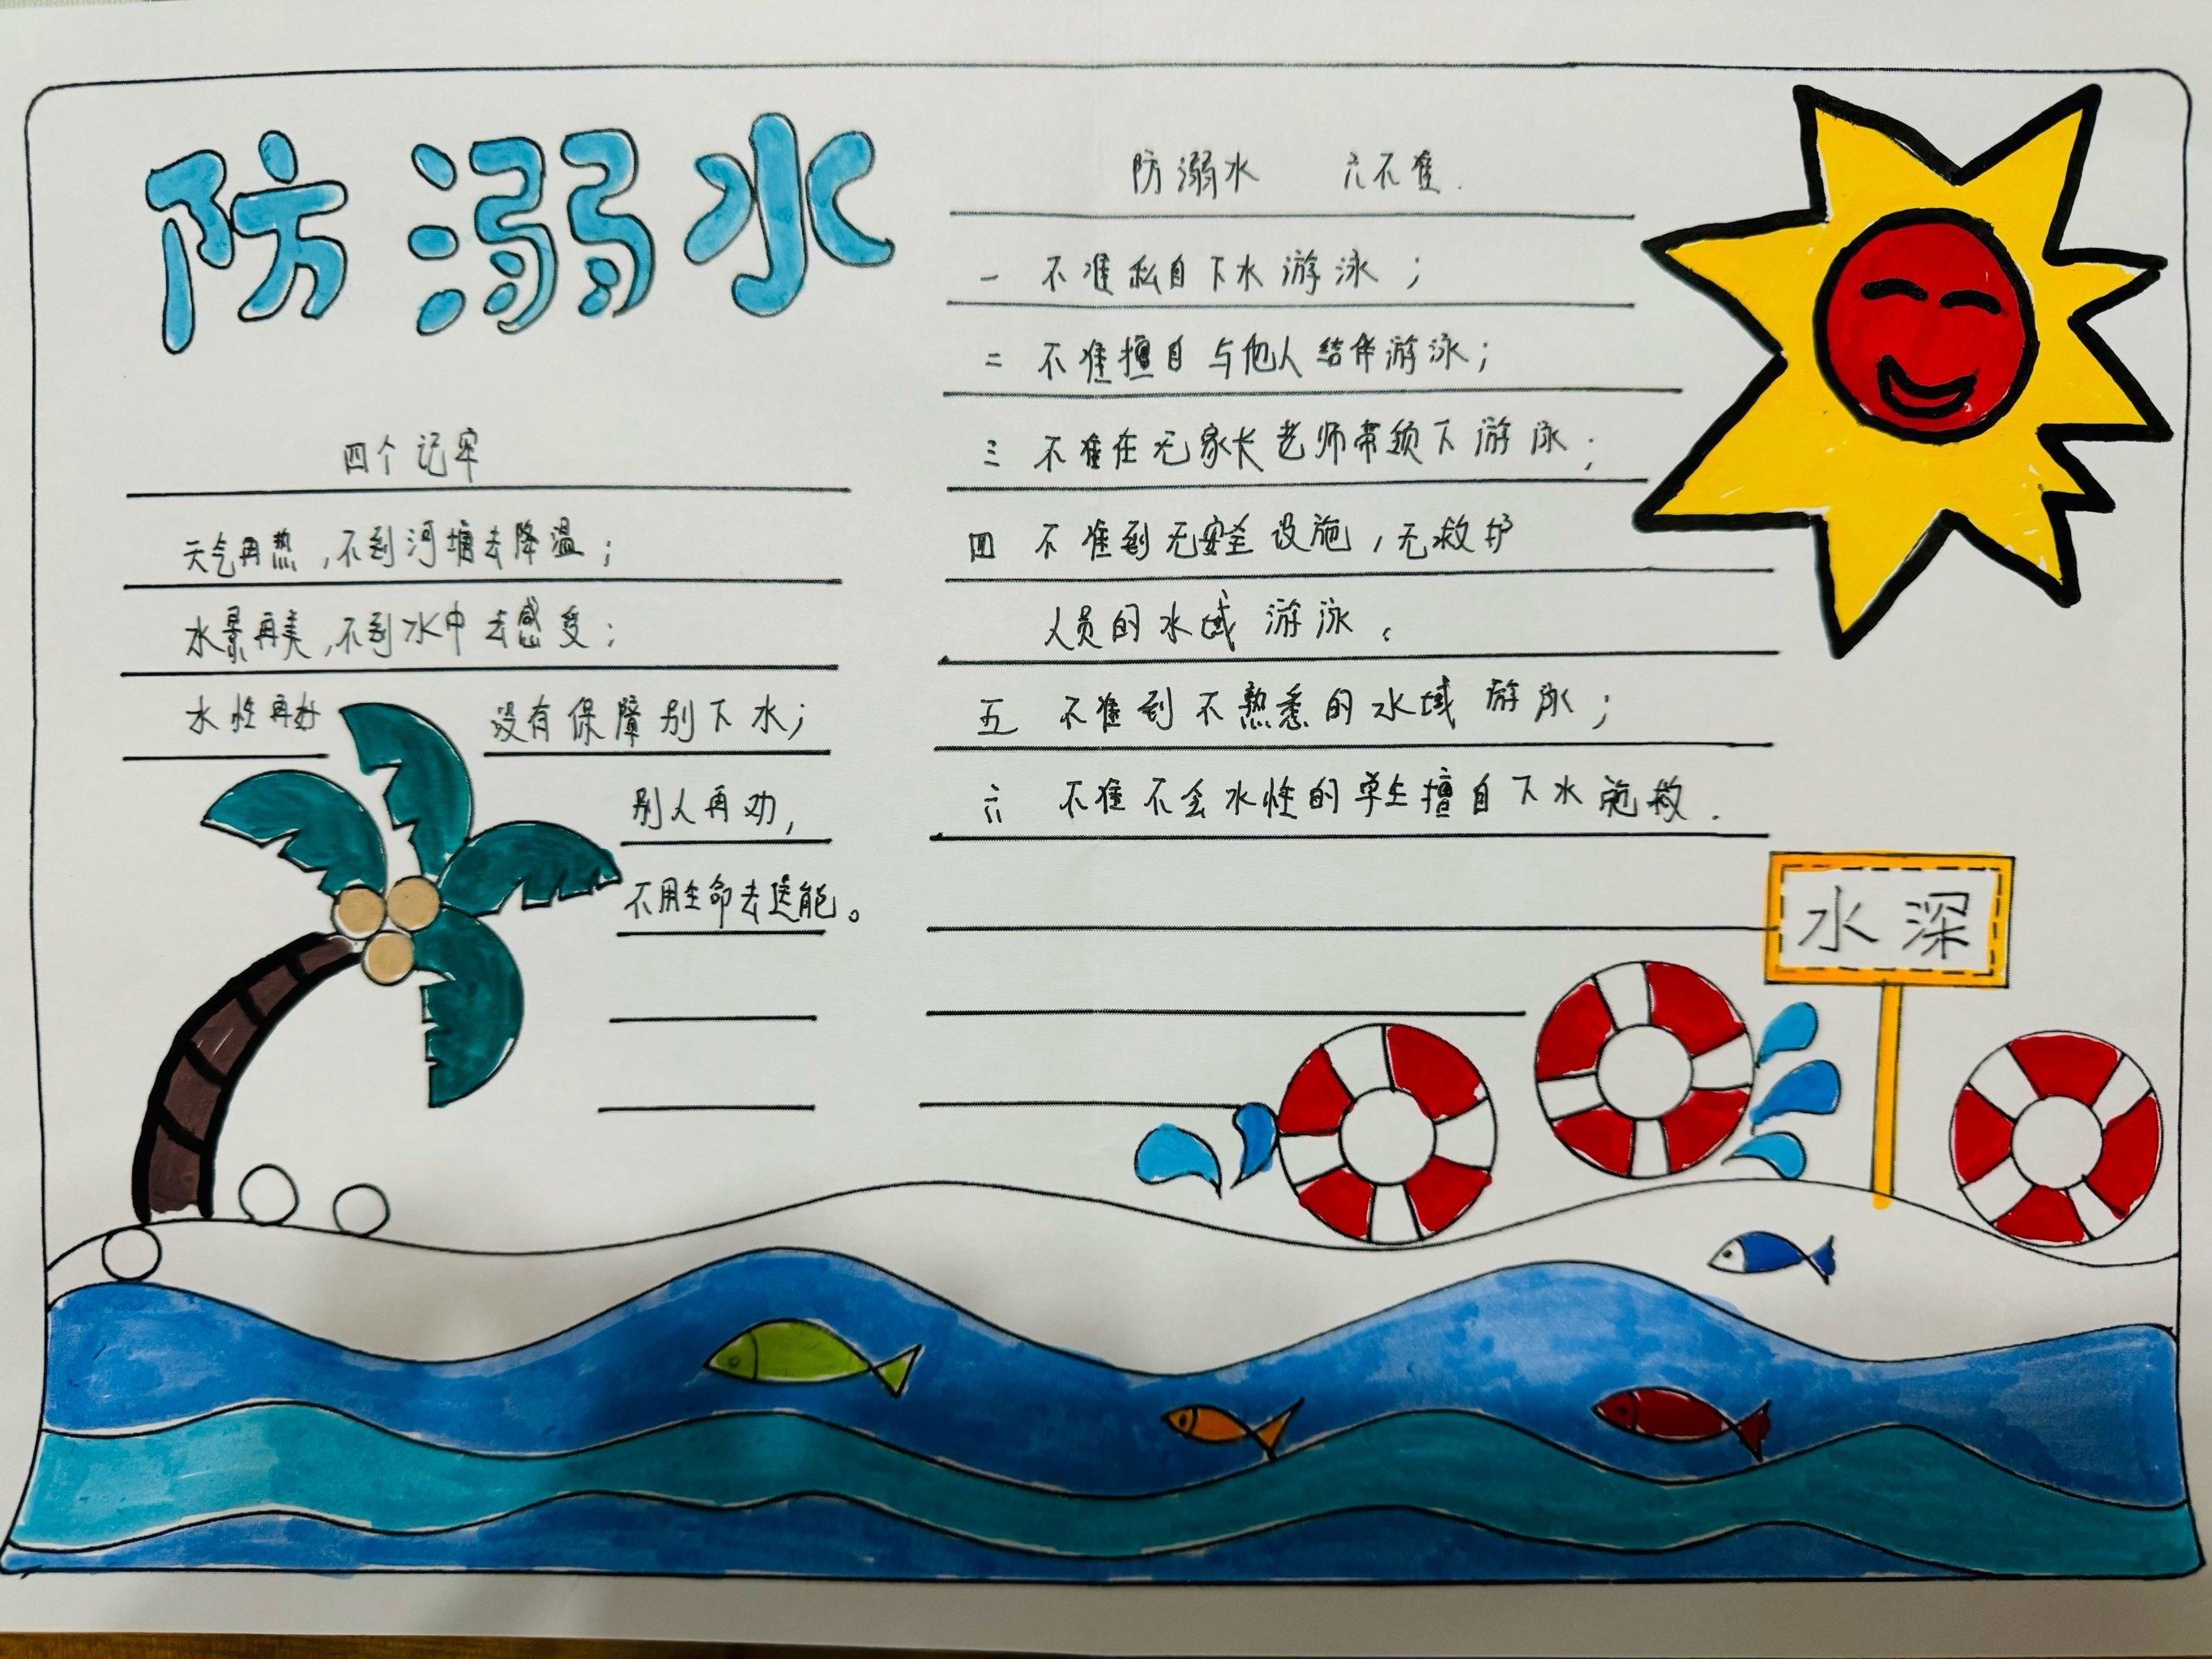 防溺水
四个记牢
天气再热，不到河塘去降温；
水景再美，不到水中去感受；
水性再好 没有保障别下水；
别人再劝，
不用生命去逞能。
防溺水 六不准.
一 不准私自下水游泳；
二 不准擅自与他人结伴游泳；
三 不准在无家长老师带领下游泳；
四 不准到无安全设施，无救护
人员的水域游泳。
五 不准到不熟悉的水域游泳；
六 不准不会水性的学生擅自下水施救.
水深